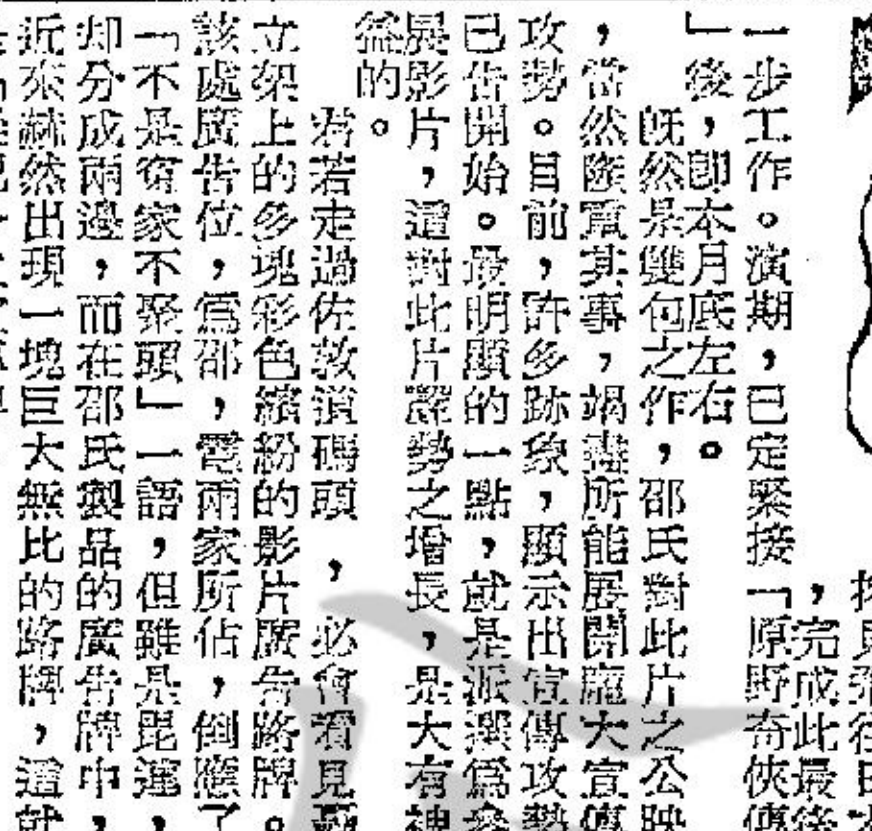 ，完成此最後
一步工作。演期，已定緊接「原野奇俠傳
」後，即本月底左右。
既然是雙包之作，邵氏對此片之公映
，當然隆重其事，竭盡所能展開龐大宣傳
攻勢。目前，許多跡象，顯示出宣傳攻勢
已告開始。最明顯的一點，就是派選爲參
展影片，這對此片聲勢之增長，是大有神
益的。
君若走過佐敦道碼頭，必會看見
立架上的多塊彩色繽紛的影片廣告路牌。
該處廣告位，爲邵，電兩家所佔，倒應了
「不是寃家不聚頭」一語，但雖是毘連，
却分成兩邊，而在邵氏製品的廣告牌中，
近來赫然出現一塊巨大無比的路牌，這就